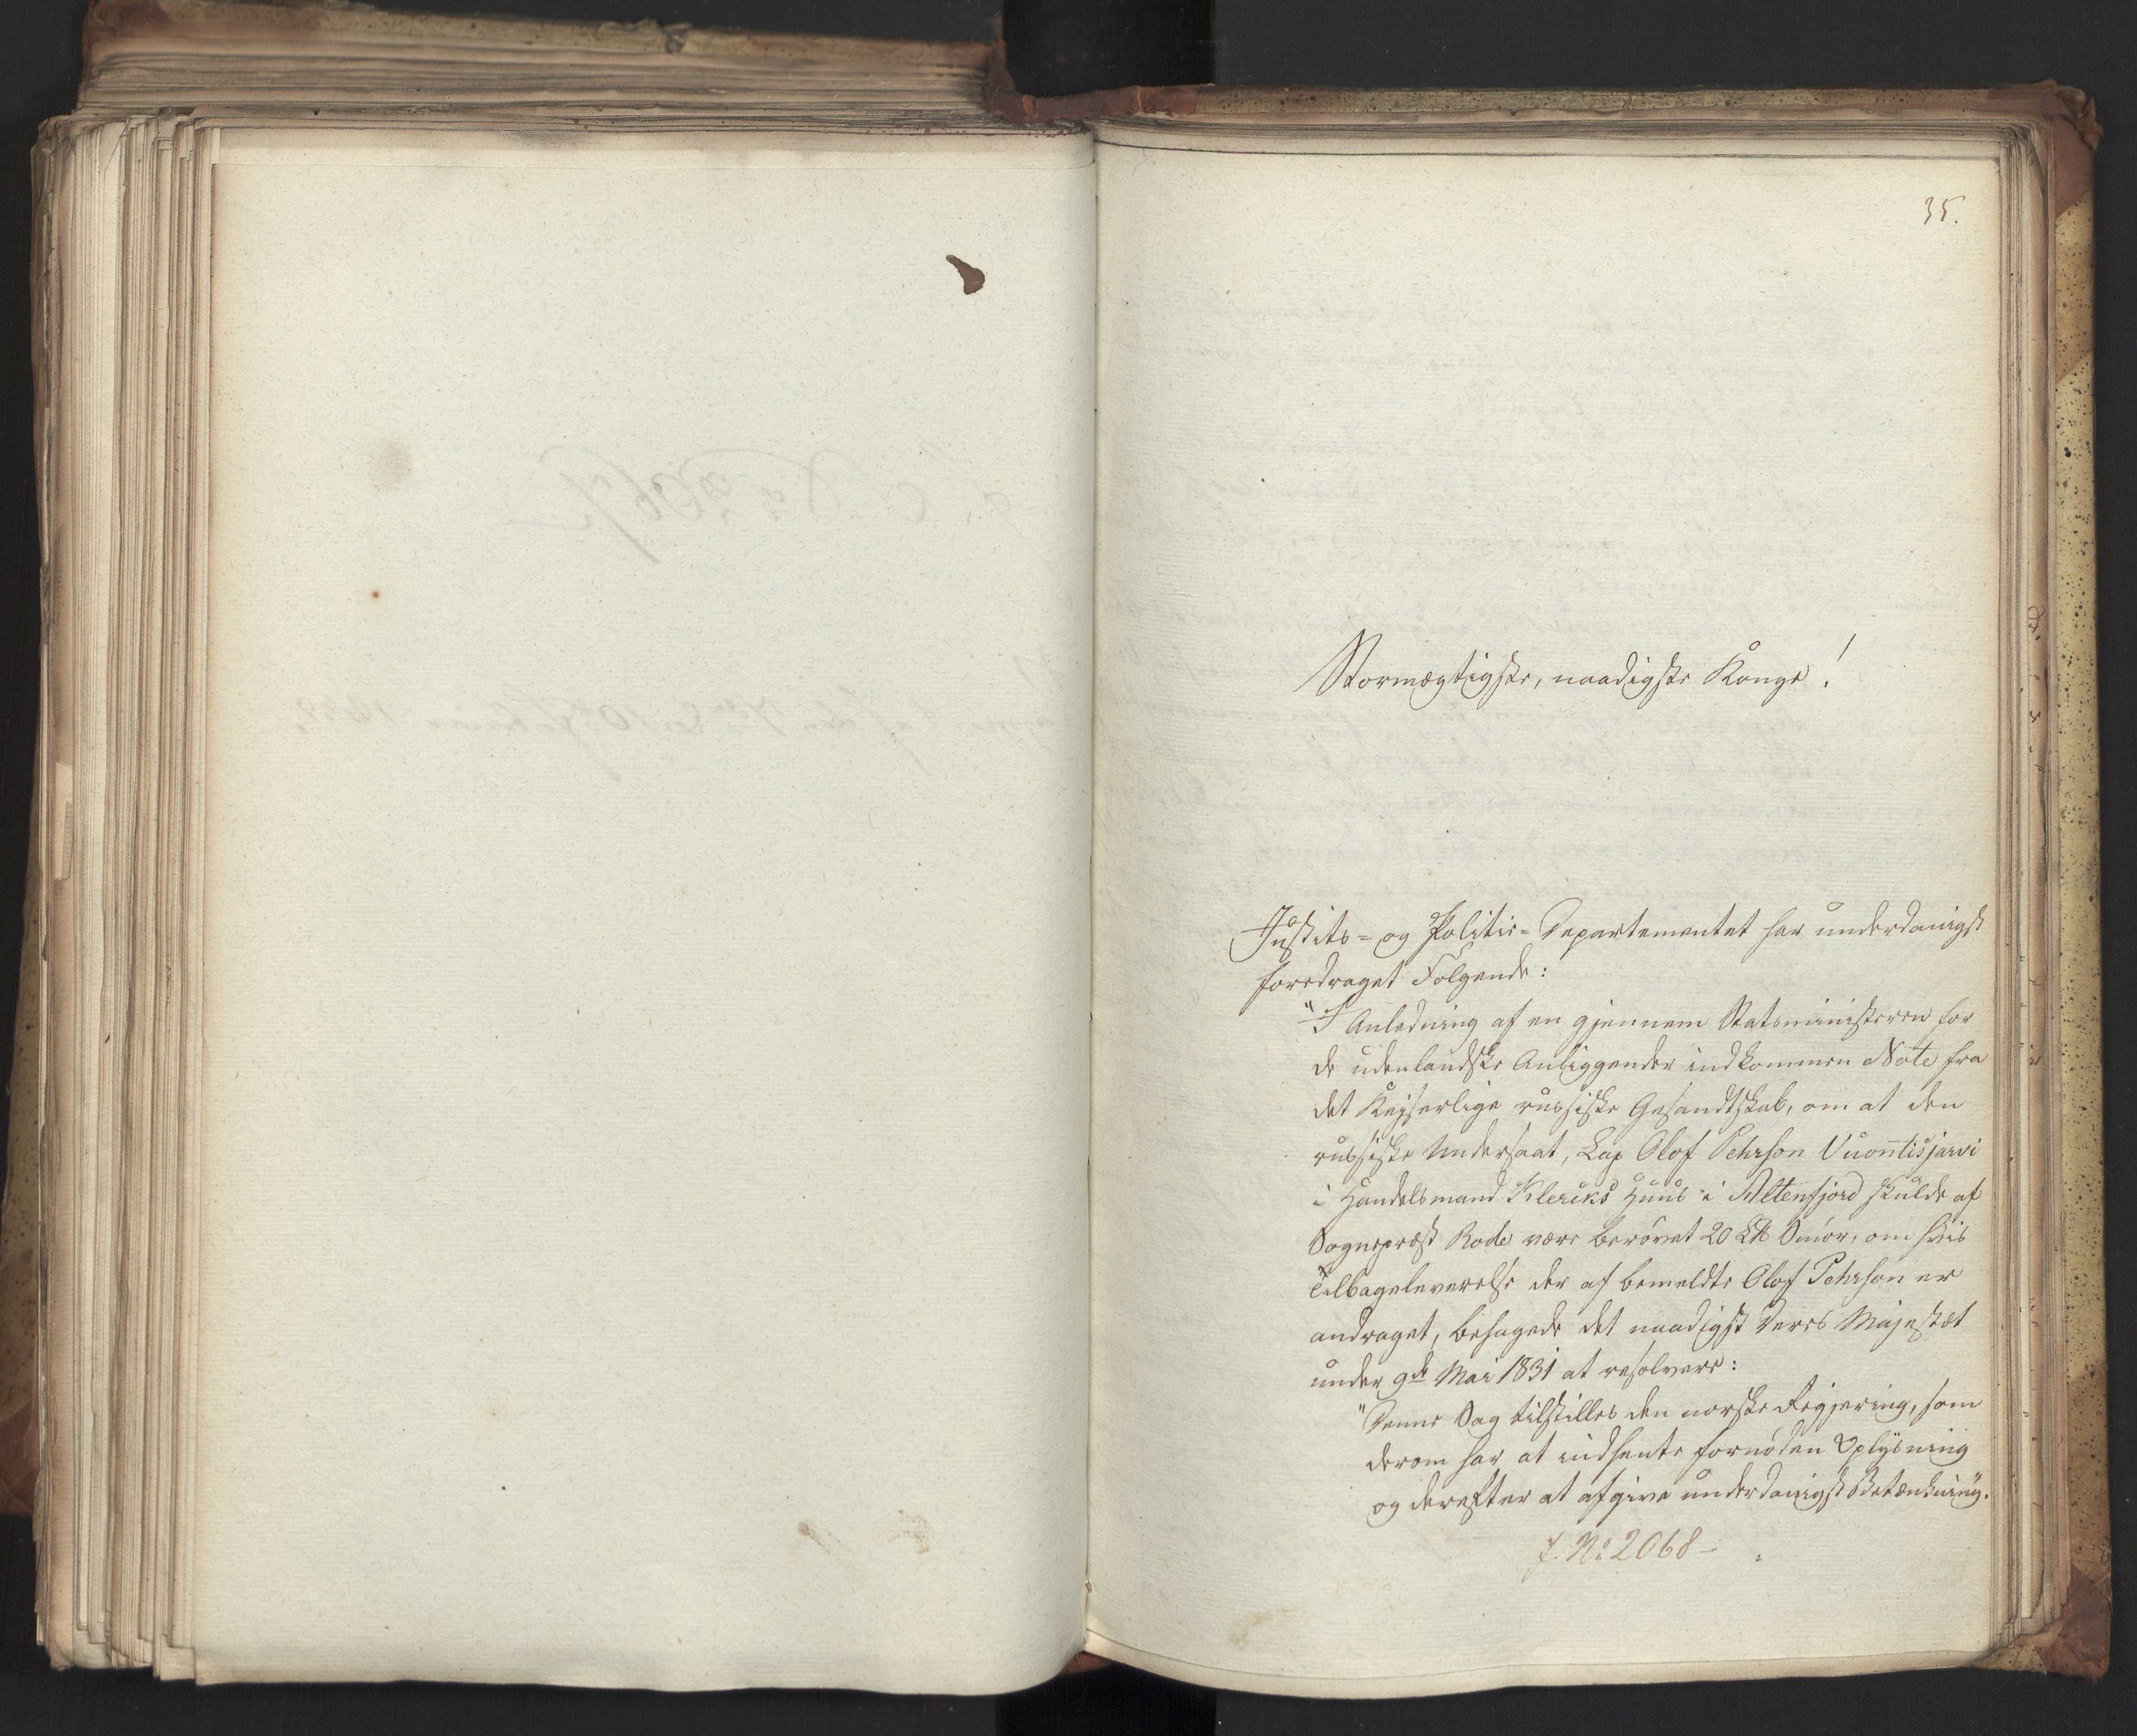 35.
Stormægtigste, naadigste Konge!
Justits- og Politie-Departementet har underdanigst
foredraget Følgende:
"I Anledning af en gjennem Statsministeren for
de udenlandske Anliggender indkommen Note fra
det Keiserlige russiske Gesandtskab, om at den
russiske Undersaat, Lap Olof Pehrson Vuontisjarvi
i Handelsmand Klercks Huus i Altenfjord skulde af
Sognepræst Rode være berøvet 20 L℔ Smør, om hvis
Tilbageleverelse der af bemeldte Olof Pehrson er
andraget, behagede det naadigst Deres Majestæt
under 9de Mai 1831 at resolvere:
"Denne Sag tilstilles den norske Regjering, som
derom har at indhente fornøden Oplysning
og derefter at afgive underdanigst Betænkning."
J. No 2068-